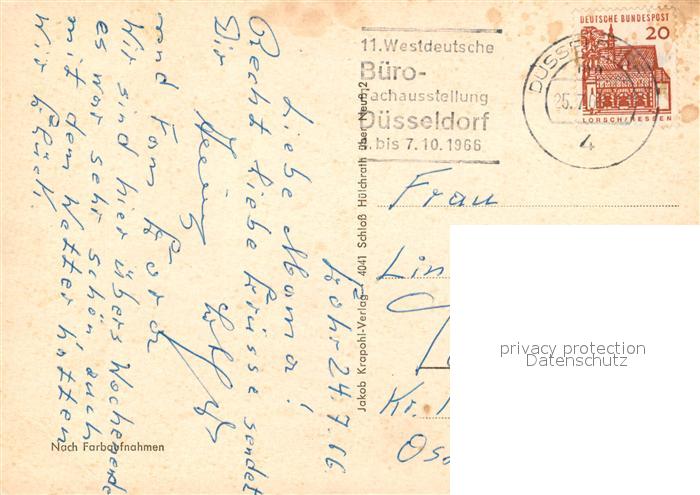 11. Westdeutsche
Büro-
Fachausstellung
Düsseldorf
bis 7.10.1966
DEUTSCHE BUNDESPOST
20
LORSCH/HESSEN
DÜSSE
25.7
4
24.7.66.
Liebe Mama!
Recht liebe Grüsse sendet
Dir
und
Wir sind hier übers Wochenende
es war sehr schön auch
mit dem Wetter hatten
wir Glück.
Jakob Krapohl-Verlag 4041 Schloß Hülchrath über Neuß 2
Frau
Lin
Kr.
Nach Farbaufnahmen
privacy protection
Datenschutz